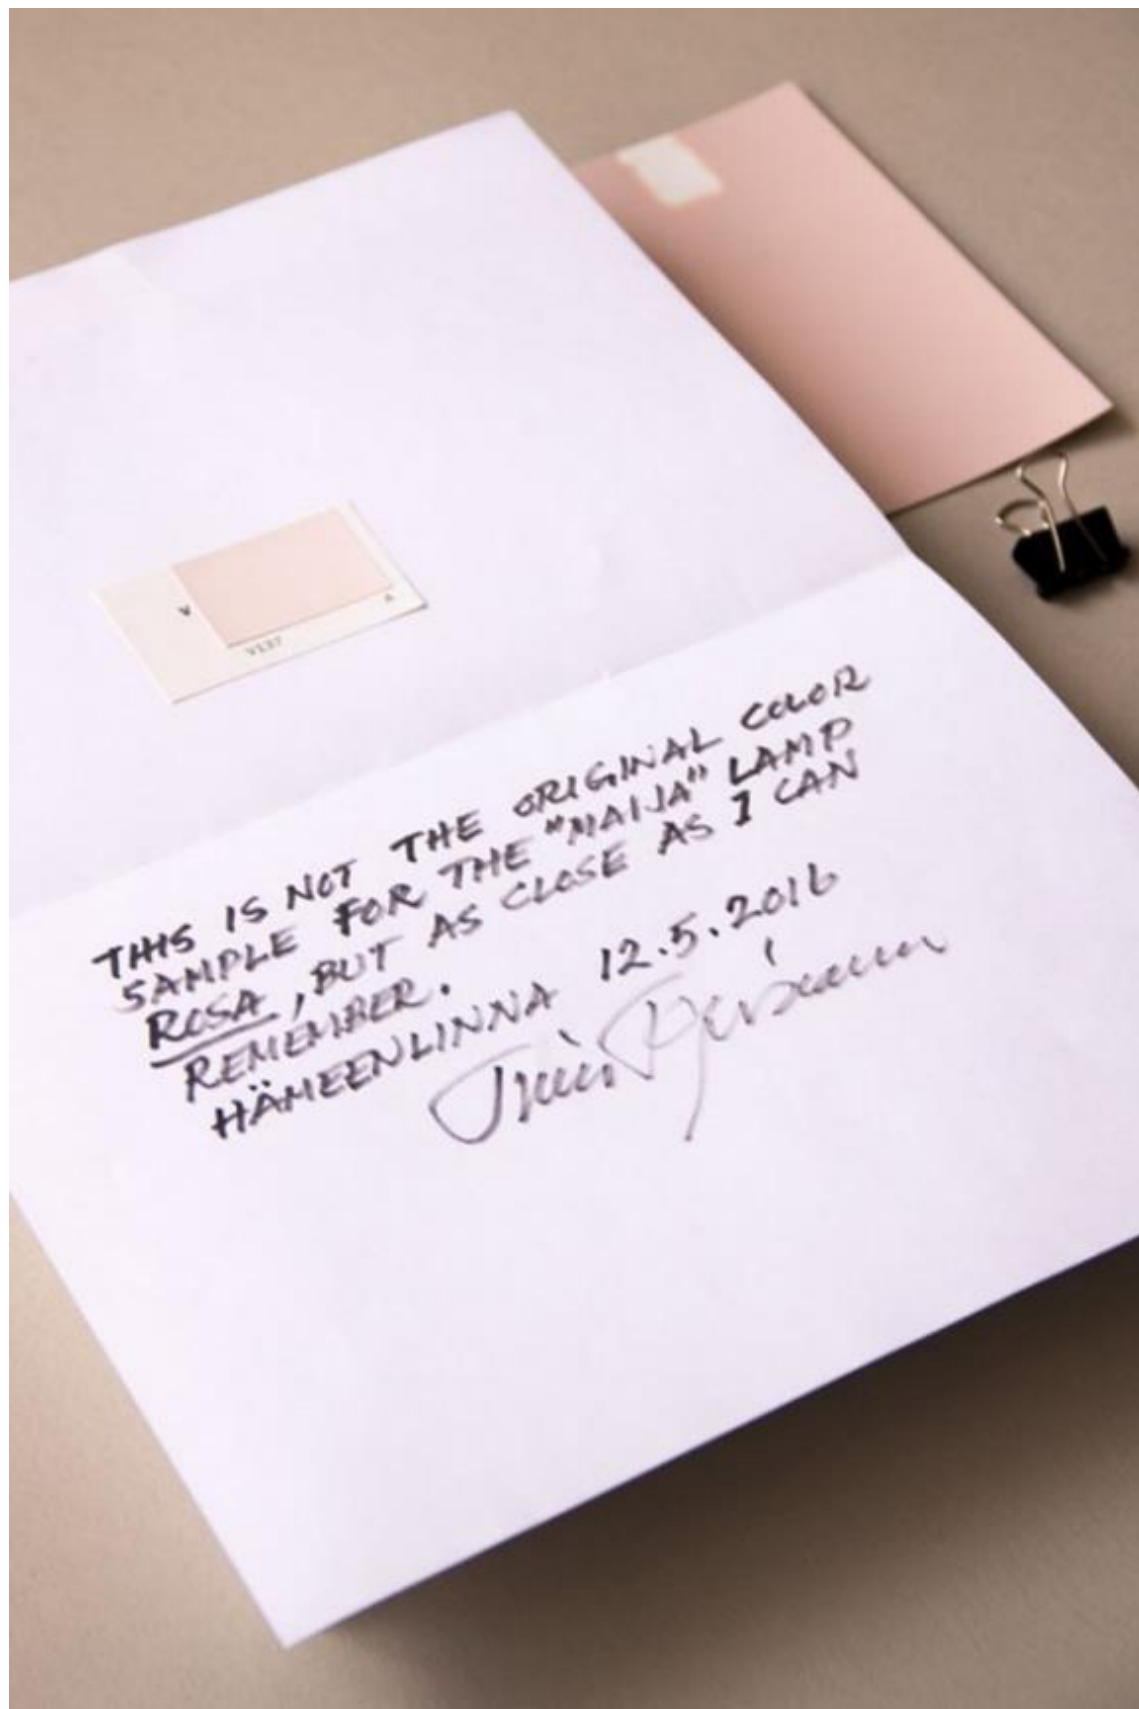 V
A
V137
THIS IS NOT THE ORIGINAL COLOR
SAMPLE FOR THE "MAIJA" LAMP
ROSA, BUT AS CLOSE AS I CAN
REMEMBER.
HÄMEENLINNA 12.5.2016